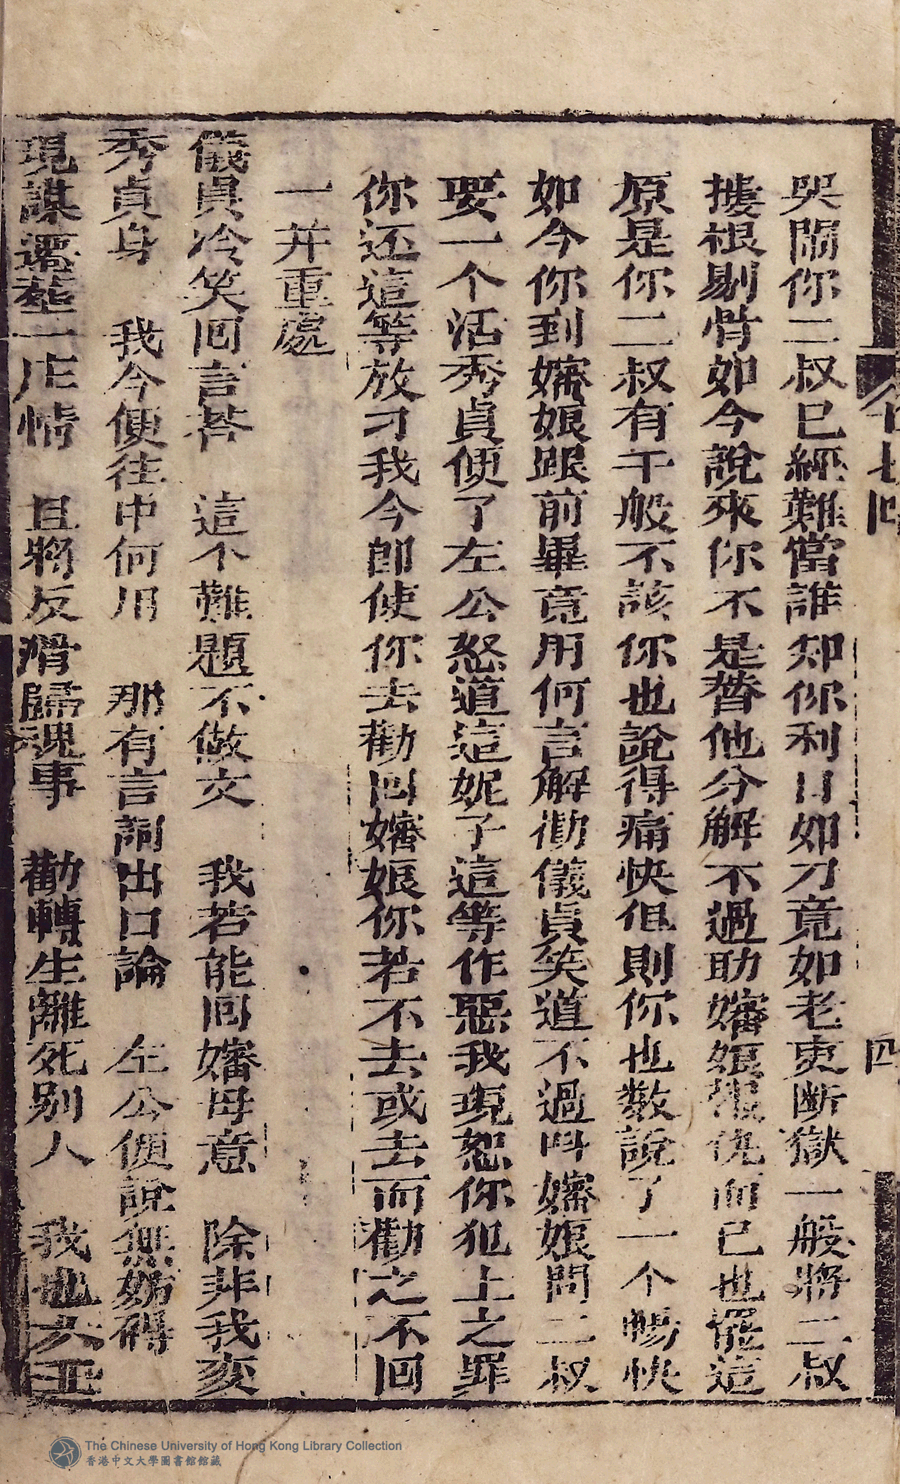 哭鬧你二叔已經難當誰知你利口如刀竟如老吏断獄一般將二叔
摟根剔骨如今說來你不是替他分解不過助嬸娘報仇而已也罷這
原是你二叔有千般不該你也說得痛快但則你也数說了一个暢快
如今你到嬸娘跟前畢竟用何言解勸儀貞笑道不過叫嬸娘問二叔
要一个活秀貞便了左公怒道這妮子這等作惡我現恕你犯上之罪
你还這等放刁我今即使你去勸回嬸娘你若不去或去而勸之不回
一并重處
儀貞冷笑囘言荅　這个難題不做文　我若能囘嬸母意　除非我变
秀貞身　我今便往中何用　那有言詞出口論　左公便說無妨碍
現謀還墓一庄情　且將反滑歸魂事　勸轉生離死别人　我也大王
四
The Chinese University of Hong Kong Library Collection
香港中文大學圖書館館藏